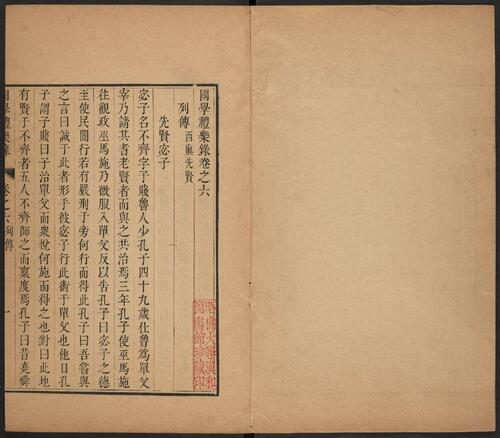 國學禮樂錄卷之六
列傳 西廡先賢
先賢宓子
宓子名不齊字子賤魯人少孔子四十九歲仕魯爲單父
宰乃請其耆老賢者而與之共治焉三年孔子使巫馬施
往觀政巫馬施乃微服入單父反以告孔子曰宓子之德
至使民闇行若有嚴刑于旁何行而得此孔子曰吾嘗與
之言曰誠于此者形乎彼宓子行此術于單父也他日孔
子謂子賤曰子治單父而衆悅何施而得之也對曰此地
有賢于不齊者五人不齊師之而稟度焉孔子曰昔堯舜
國學禮樂錄
卷之六列傳
一
哈佛大學漢和
圖書館珍藏印